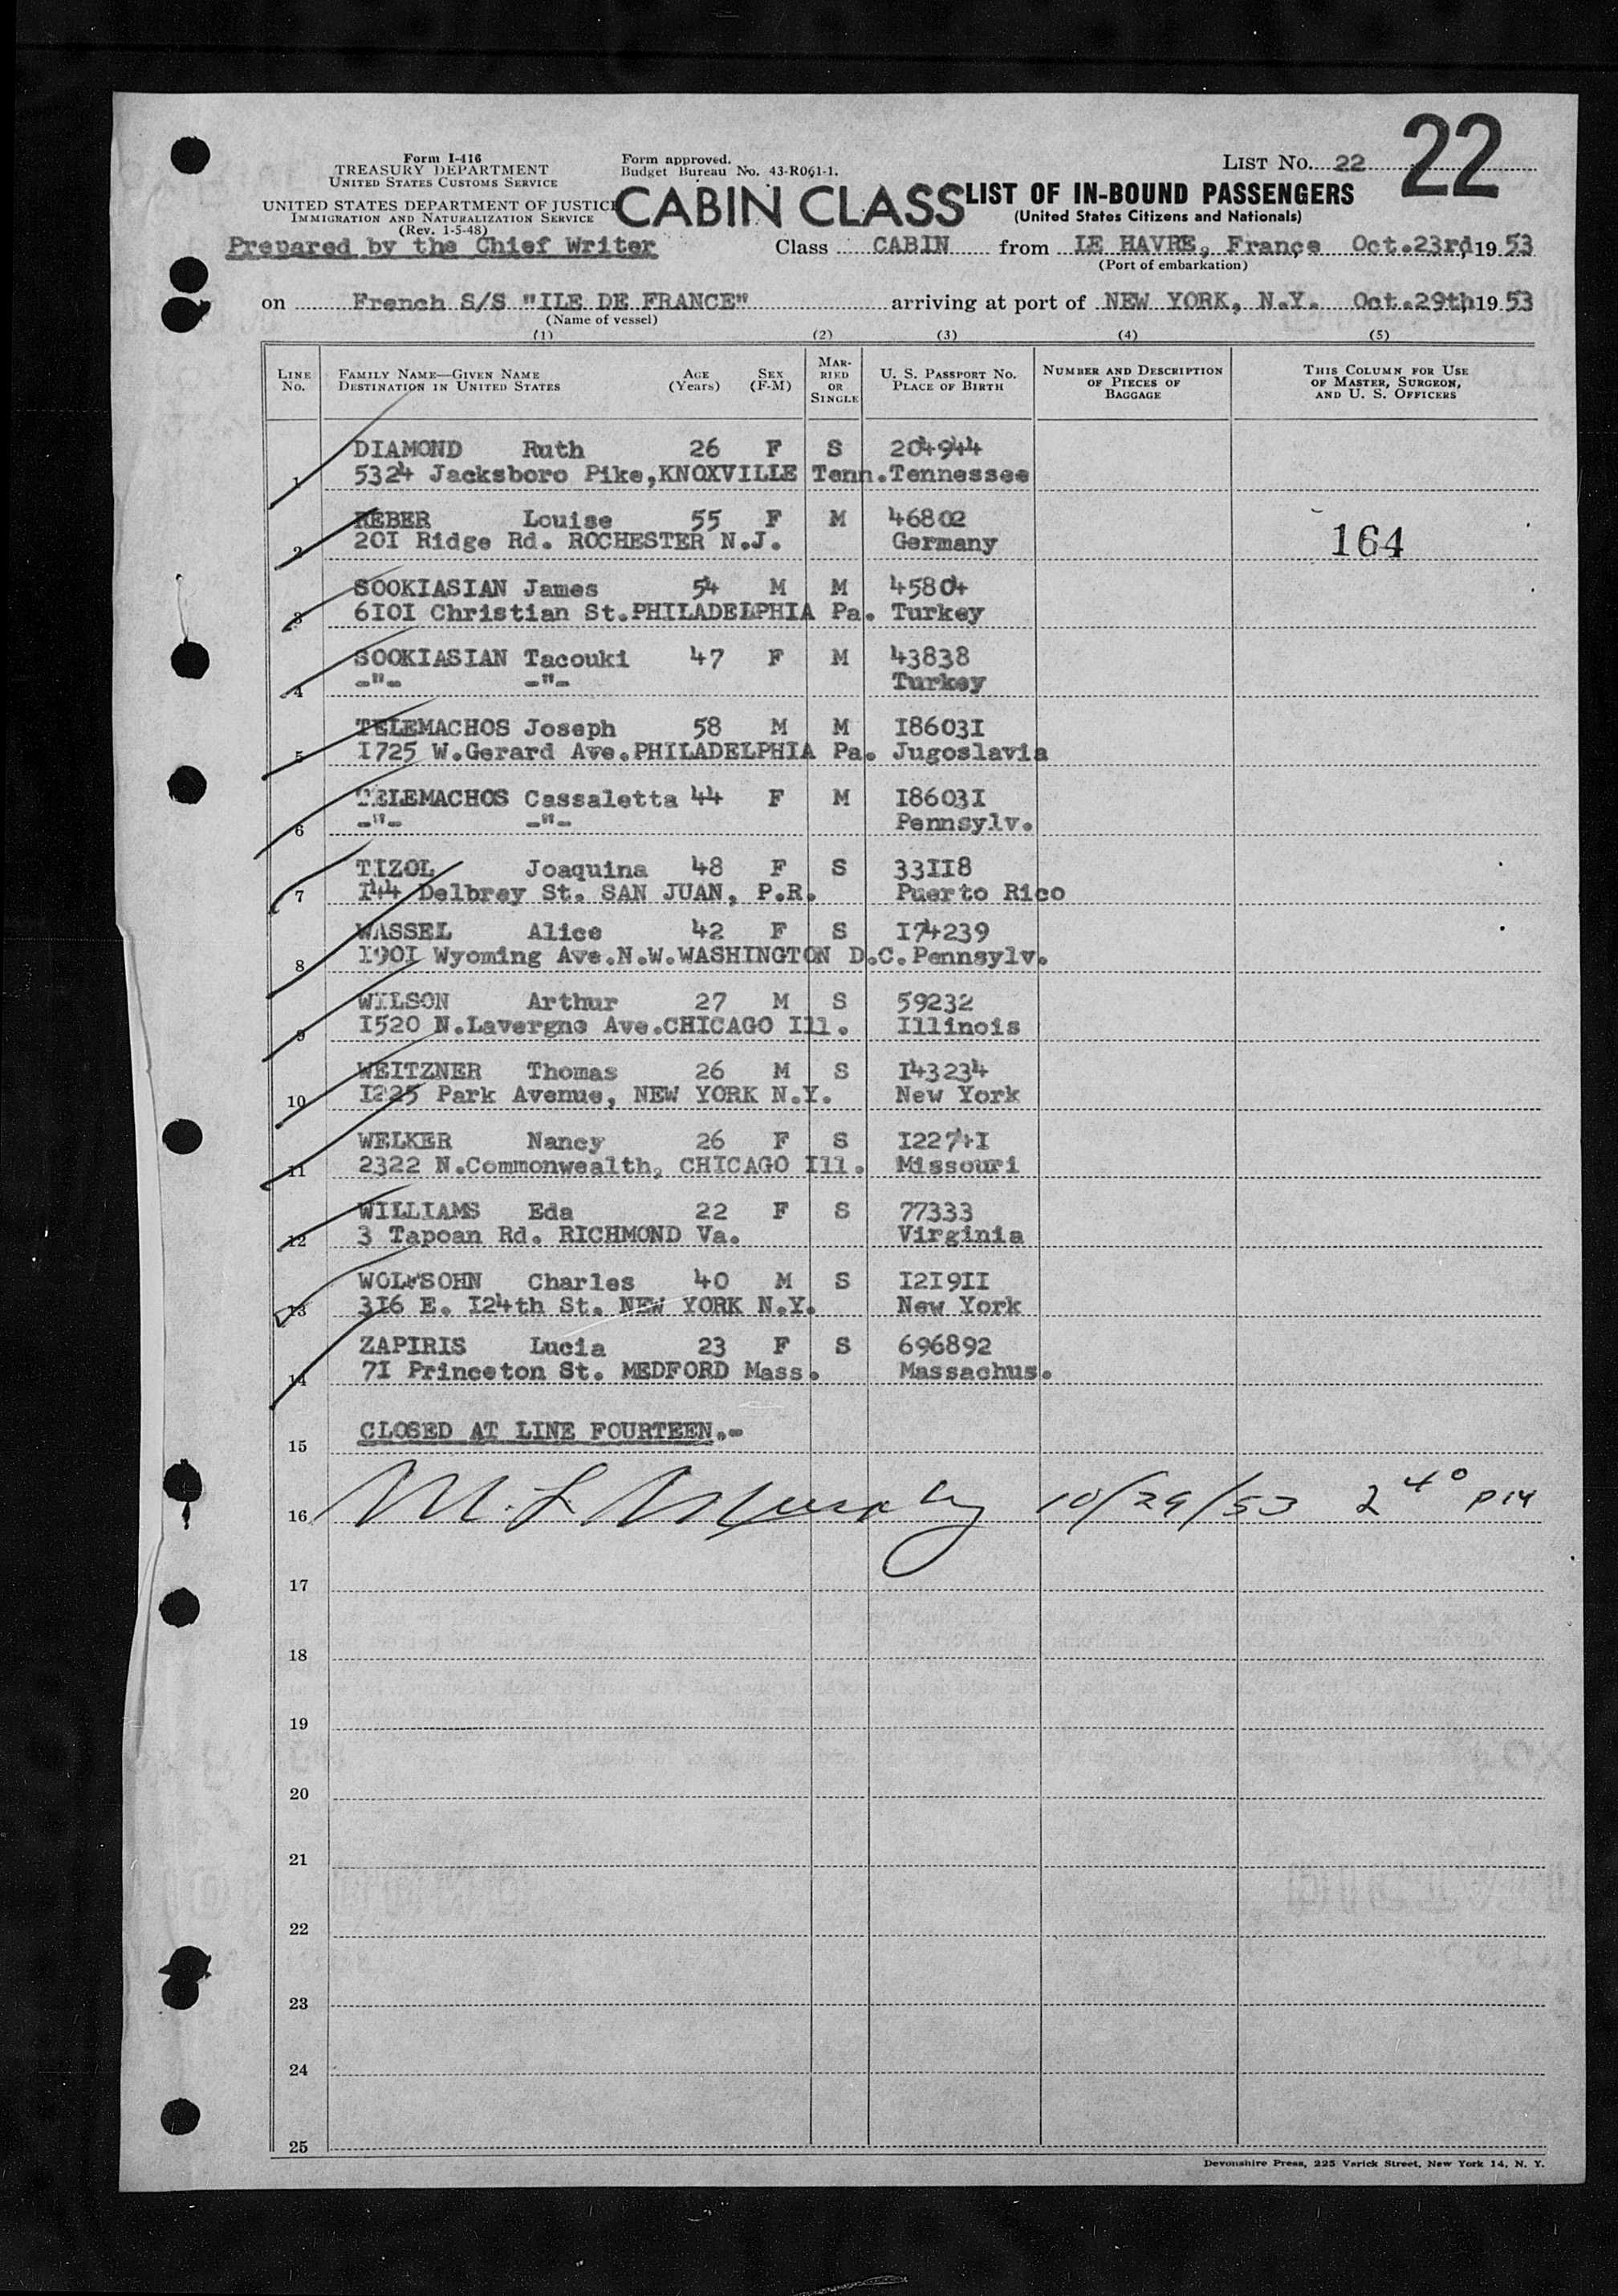 22
Form I-416
TREASURY DEPARTMENT
UNITED STATES CUSTOMS SERVICE
UNITED STATES DEPARTMENT OF JUSTICE
IMMIGRATION AND NATURALIZATION SERVICE
(Rev. 1-5-48)
Form approved.
Budget Bureau No. 43-R061-1.
LIST NO. 22
CABIN CLASS LIST OF IN-BOUND PASSENGERS
(United States Citizens and Nationals)
Prepared by the Chief Writer Class CABIN from LE HAVRE, France Oct.23rd, 19 53
(Port of embarkation)
on French S/S "ILE DE FRANCE" arriving at port of NEW YORK, N.Y. Oct.29th, 19 53
(Name of vessel)
(1) (2) (3) (4) (5)
LINE No. FAMILY NAME—GIVEN NAME DESTINATION IN UNITED STATES AGE (Years) SEX (F-M) MARRIED OR SINGLE U. S. PASSPORT NO. PLACE OF BIRTH NUMBER AND DESCRIPTION OF PIECES OF BAGGAGE THIS COLUMN FOR USE OF MASTER, SURGEON, AND U. S. OFFICERS
DIAMOND Ruth 26 F S 204944
1 5324 Jacksboro Pike,KNOXVILLE Tenn.Tennessee
REBER Louise 55 F M 46802
2 20I Ridge Rd. ROCHESTER N.J. Germany 164
SOOKIASIAN James 54 M M 45804
3 6I0I Christian St.PHILADELPHIA Pa. Turkey
SOOKIASIAN Tacouki 47 F M 43838
4 -"- -"- Turkey
TELEMACHOS Joseph 58 M M I8603I
5 I725 W.Gerard Ave.PHILADELPHIA Pa. Jugoslavia
TELEMACHOS Cassaletta 44 F M I8603I
6 -"- -"- Pennsylv.
TIZOL Joaquina 48 F S 33II8
7 I44 Delbrey St. SAN JUAN, P.R. Puerto Rico
WASSEL Alice 42 F S I74239
8 I90I Wyoming Ave.N.W.WASHINGTON D.C.Pennsylv.
WILSON Arthur 27 M S 59232
9 I520 N.Lavergne Ave.CHICAGO Ill. Illinois
WEITZNER Thomas 26 M S I43234
10 I225 Park Avenue, NEW YORK N.Y. New York
WELKER Nancy 26 F S I2274I
11 2322 N.Commonwealth, CHICAGO Ill. Missouri
WILLIAMS Eda 22 F S 77333
12 3 Tapoan Rd. RICHMOND Va. Virginia
WOLFSOHN Charles 40 M S I2I9II
13 3I6 E. I24th St. NEW YORK N.Y. New York
ZAPIRIS Lucia 23 F S 696892
14 7I Princeton St. MEDFORD Mass. Massachus.
15 CLOSED AT LINE FOURTEEN.-
16 M. L. Murphy 10/29/53 2 40 PM
17
18
19
20
21
22
23
24
25
Devonshire Press, 225 Varick Street, New York 14, N. Y.